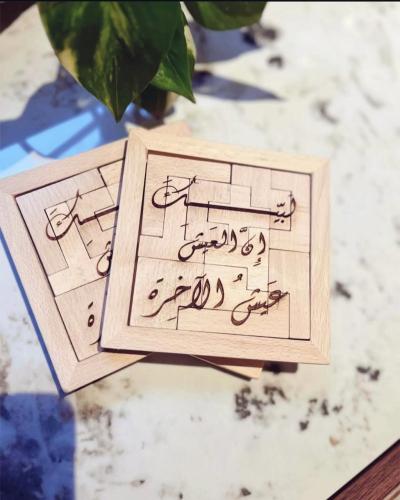 لَبَّيْكَ
إِنَّ الْعَيْشَ
عَيْشُ الْآخِرَةِ